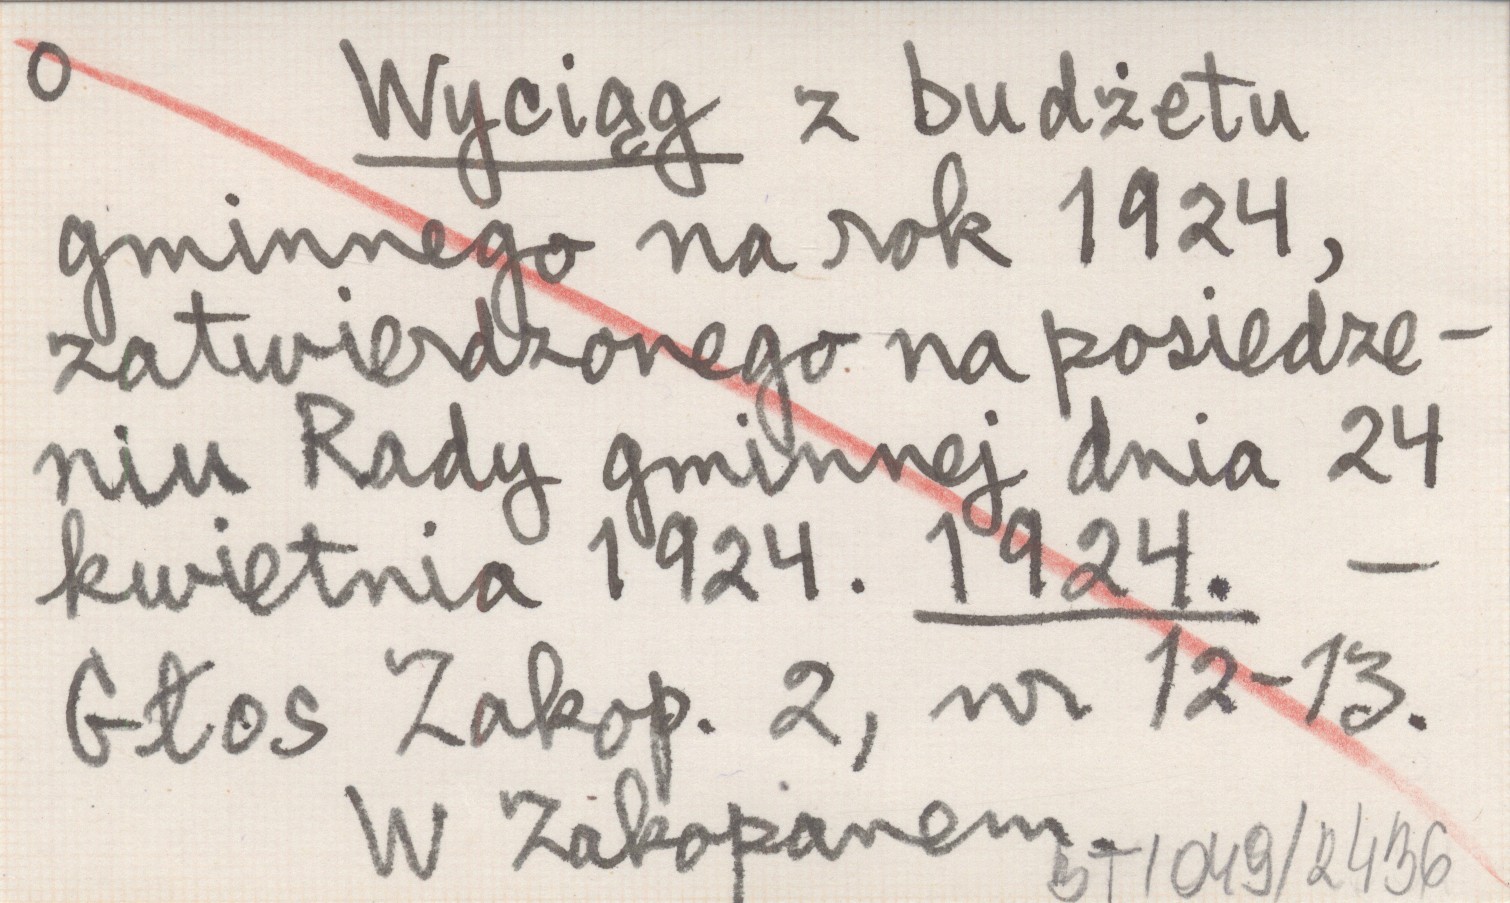 o Wyciąg z budżetu
gminnego na rok 1924,
zatwierdzonego na posiedze-
niu Rady gminnej dnia 24
kwietnia 1924. 1924. –
Głos Zakop. 2, nr 12-13.
W Zakopanem.
BT1049/2436